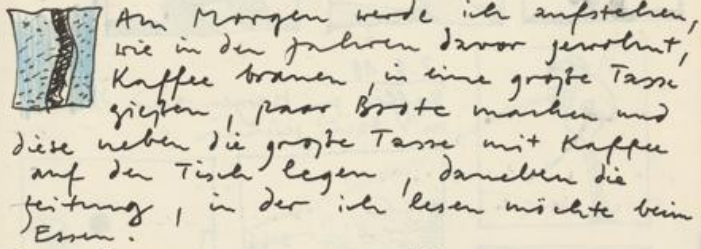 Am Morgen werde ich aufstehen,
wie in den Jahren davor gewohnt,
Kaffee brauen, in eine große Tasse
gießen, paar Brote machen und
diese neben die große Tasse mit Kaffee
auf den Tisch legen, daneben die
Zeitung, in der ich lesen möchte beim
Essen.